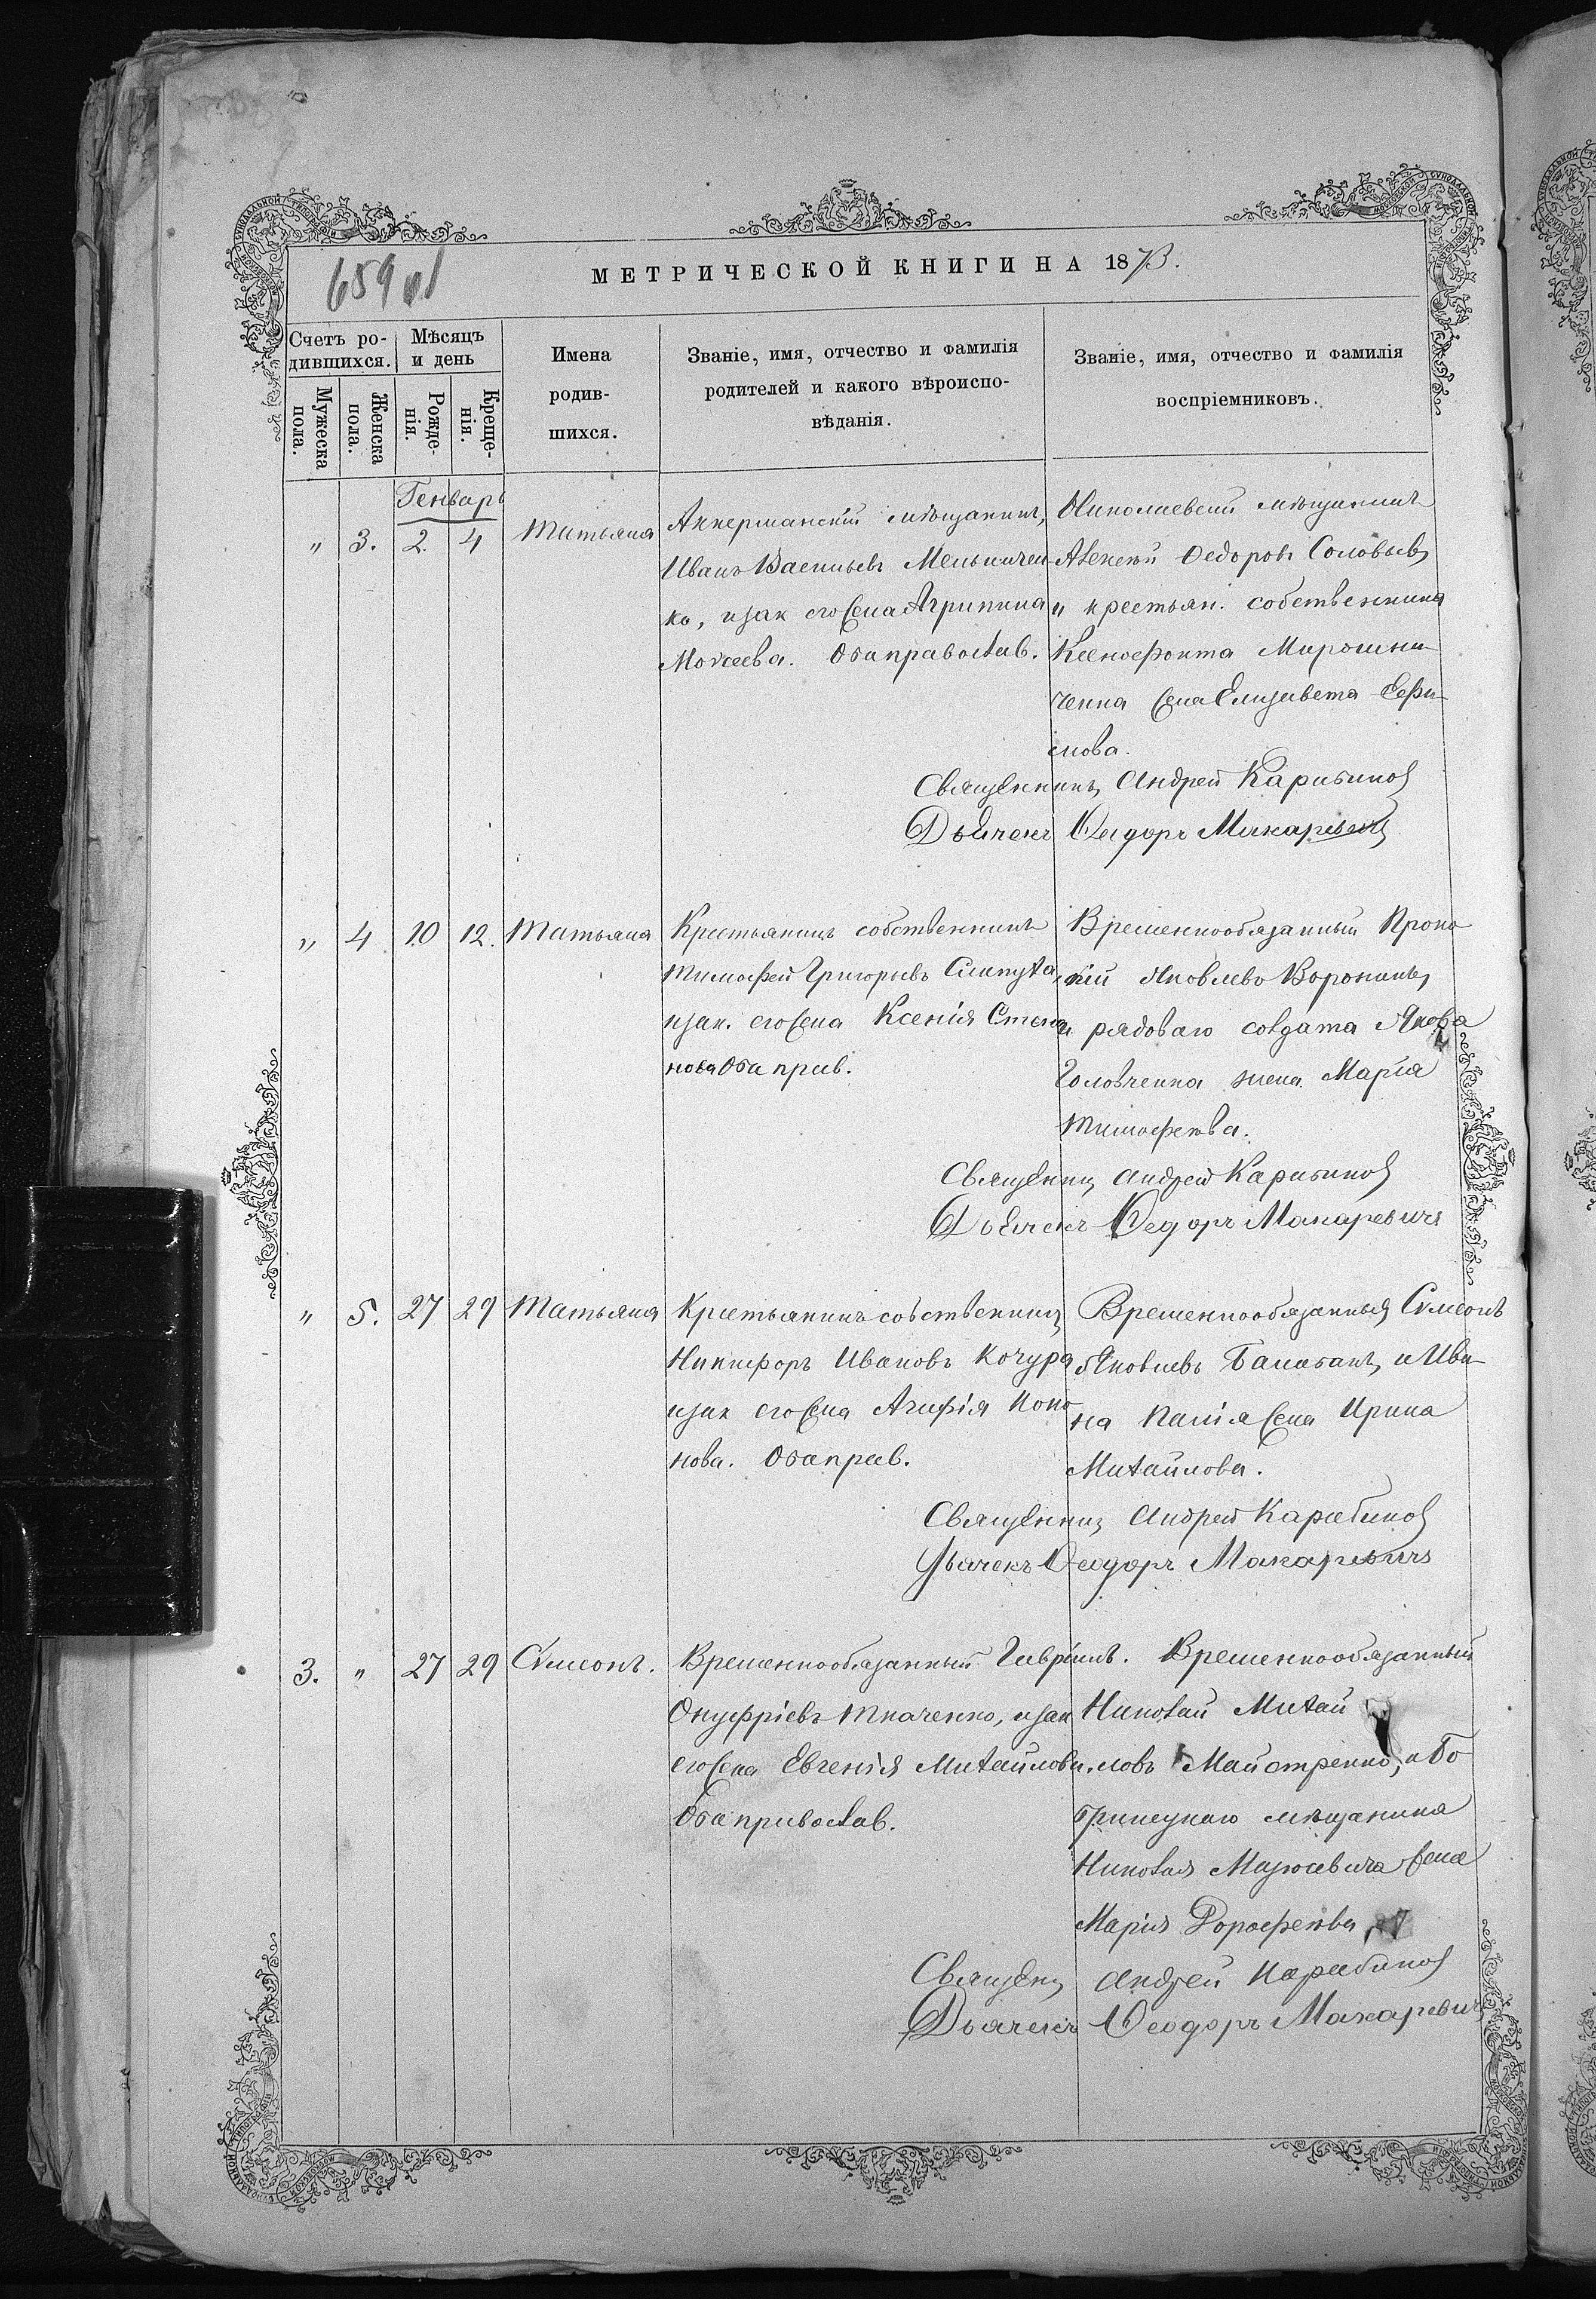 МЕТРИЧЕСКОЙ КНИГИ НА 1873.
659 об
Счетъ ро-
дившихся.
Мужеска пола.
Женска пола.
Мѣсяцъ
и день
Рожде-
нія.
Креще-
нія.
Имена
родив-
шихся.
Званіе, имя, отчество и фамилія
родителей и какого вѣроиспо-
вѣданія.
Званіе, имя, отчество и фамилія
воспріемниковъ.
Генварь
" 3. 2. 4 Татьяна
Аккерманскій мѣщанинъ,
Иванъ Васильевъ Мельничен-
ко, изак его жена Агрипина
Моисеева. Оба православ.
Николаевскій мѣщанинъ
Алексѣй Федоровъ Соловьевъ
и крестьян. собственника
Ксенофонта Мирошни-
ченка жена Елизавета Ефи-
мова.
Священникъ Андрей Карабиновъ
Дьячекъ Феодоръ Макаревичъ
" 4 10 12. Татьяна
Крестьянинъ собственникъ
Тимофей Григорьевъ
изак. его жена Ксенія Степа
нова Оба прав.
Временнообязанный Проко
пій Яковлевъ Воронинъ,
и рядоваго солдата Якова
Головченка жена Марія
Тимофеева.
Священникъ Андрей Карабиновъ
Дьячекъ Феодоръ Макаревичъ
" 5. 27 29 Татьяна
Крестьянинъ собственникъ
Никифоръ Ивановъ Кочура
изак его жена Агафія Коно
нова. Оба прав.
Временнообязанный Сѵмеонъ
Яковлевъ Балабанъ, и Ива-
на Палія жена Ирина
Михайлова.
Священникъ Андрей Карабиновъ
Дьячекъ Феодоръ Макаревичъ
3. " 27 29 Сѵмеонъ.
Временнообязанный Гавріилъ.
Онуфріевъ Ткаченко, изак
его жена Евгенія Михайлова.
Оба православ.
Временнообязанный
Николай Михай
ловъ Майстренко, и Бо
бринецкаго мѣщанина
Николая жена
Марія Дорофеева
Священ Андрей Карабиновъ
Дьячекъ Феодоръ Макаревичъ